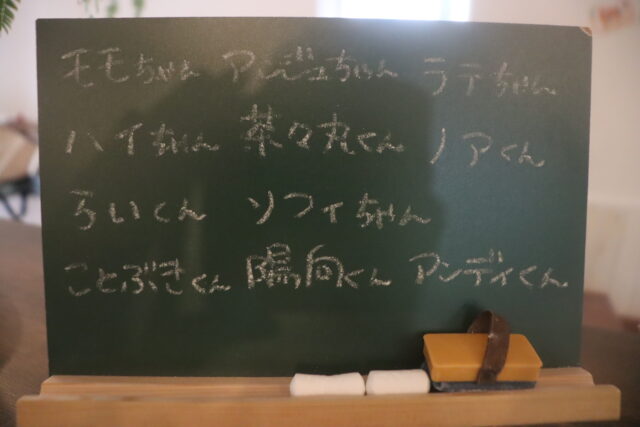 モモちゃん アンジュちゃん ラテちゃん
ハイちゃん 茶々丸くん ノアくん
らいくん ソフィちゃん
ことぶきくん 陽向くん アンディくん